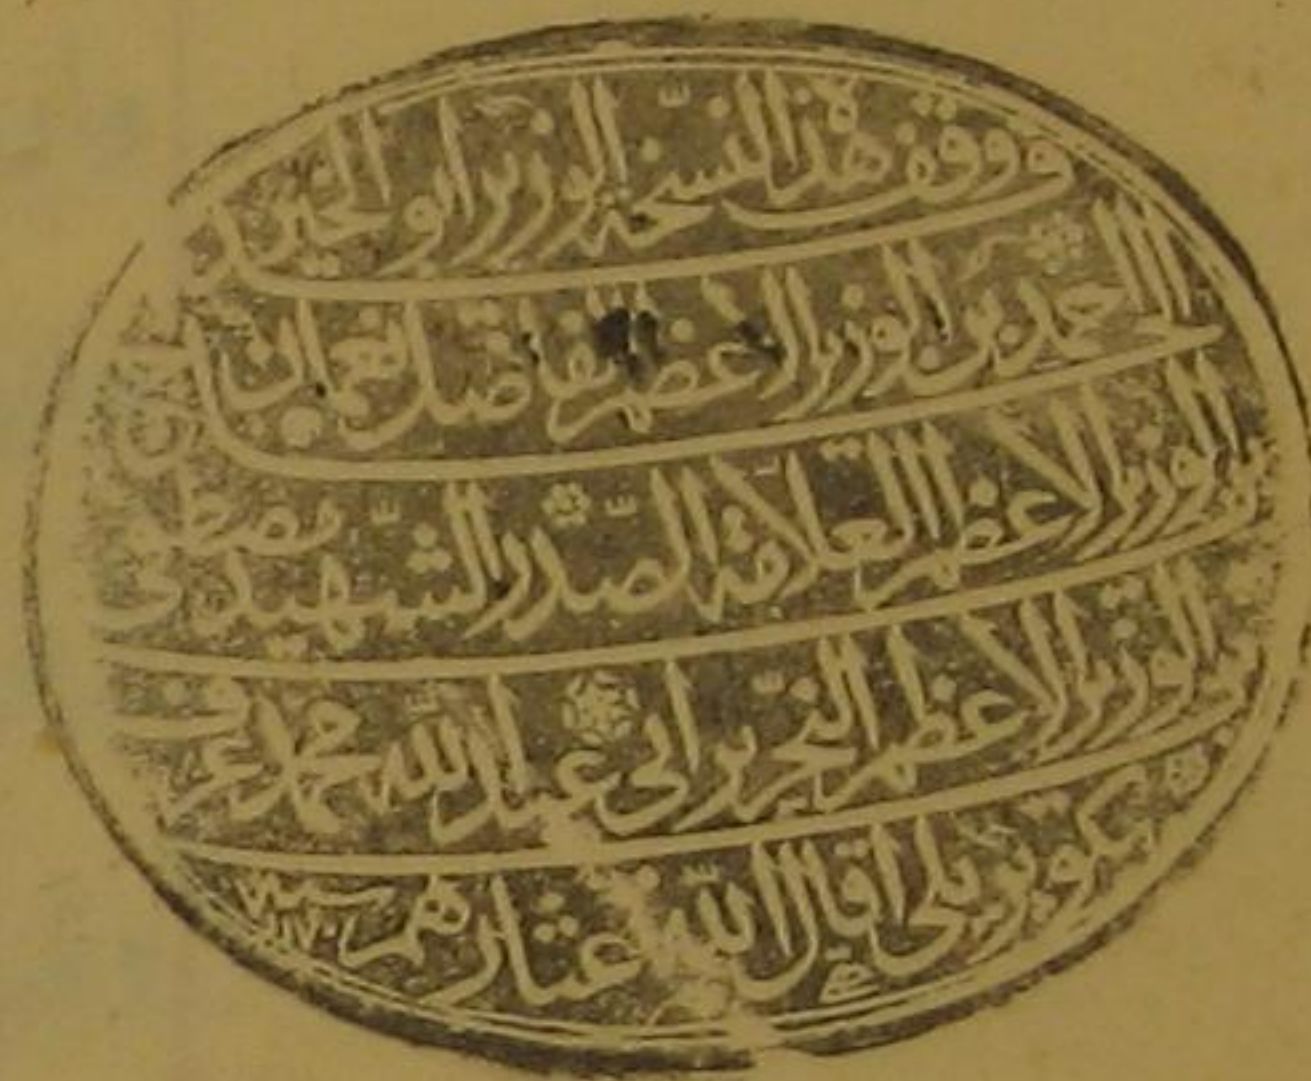 و وقف هذا النسخة الوزير ابو الخير
الحاج احمد بن الوزير الاعظم الفاضل نعمان
بن الوزير الاعظم العلامة الصدر الشهيد مصطفى
بن الوزير الاعظم النحرير ابي عبد الله محمد عرف
بكوپريلى اقال الله عثارهم سنه